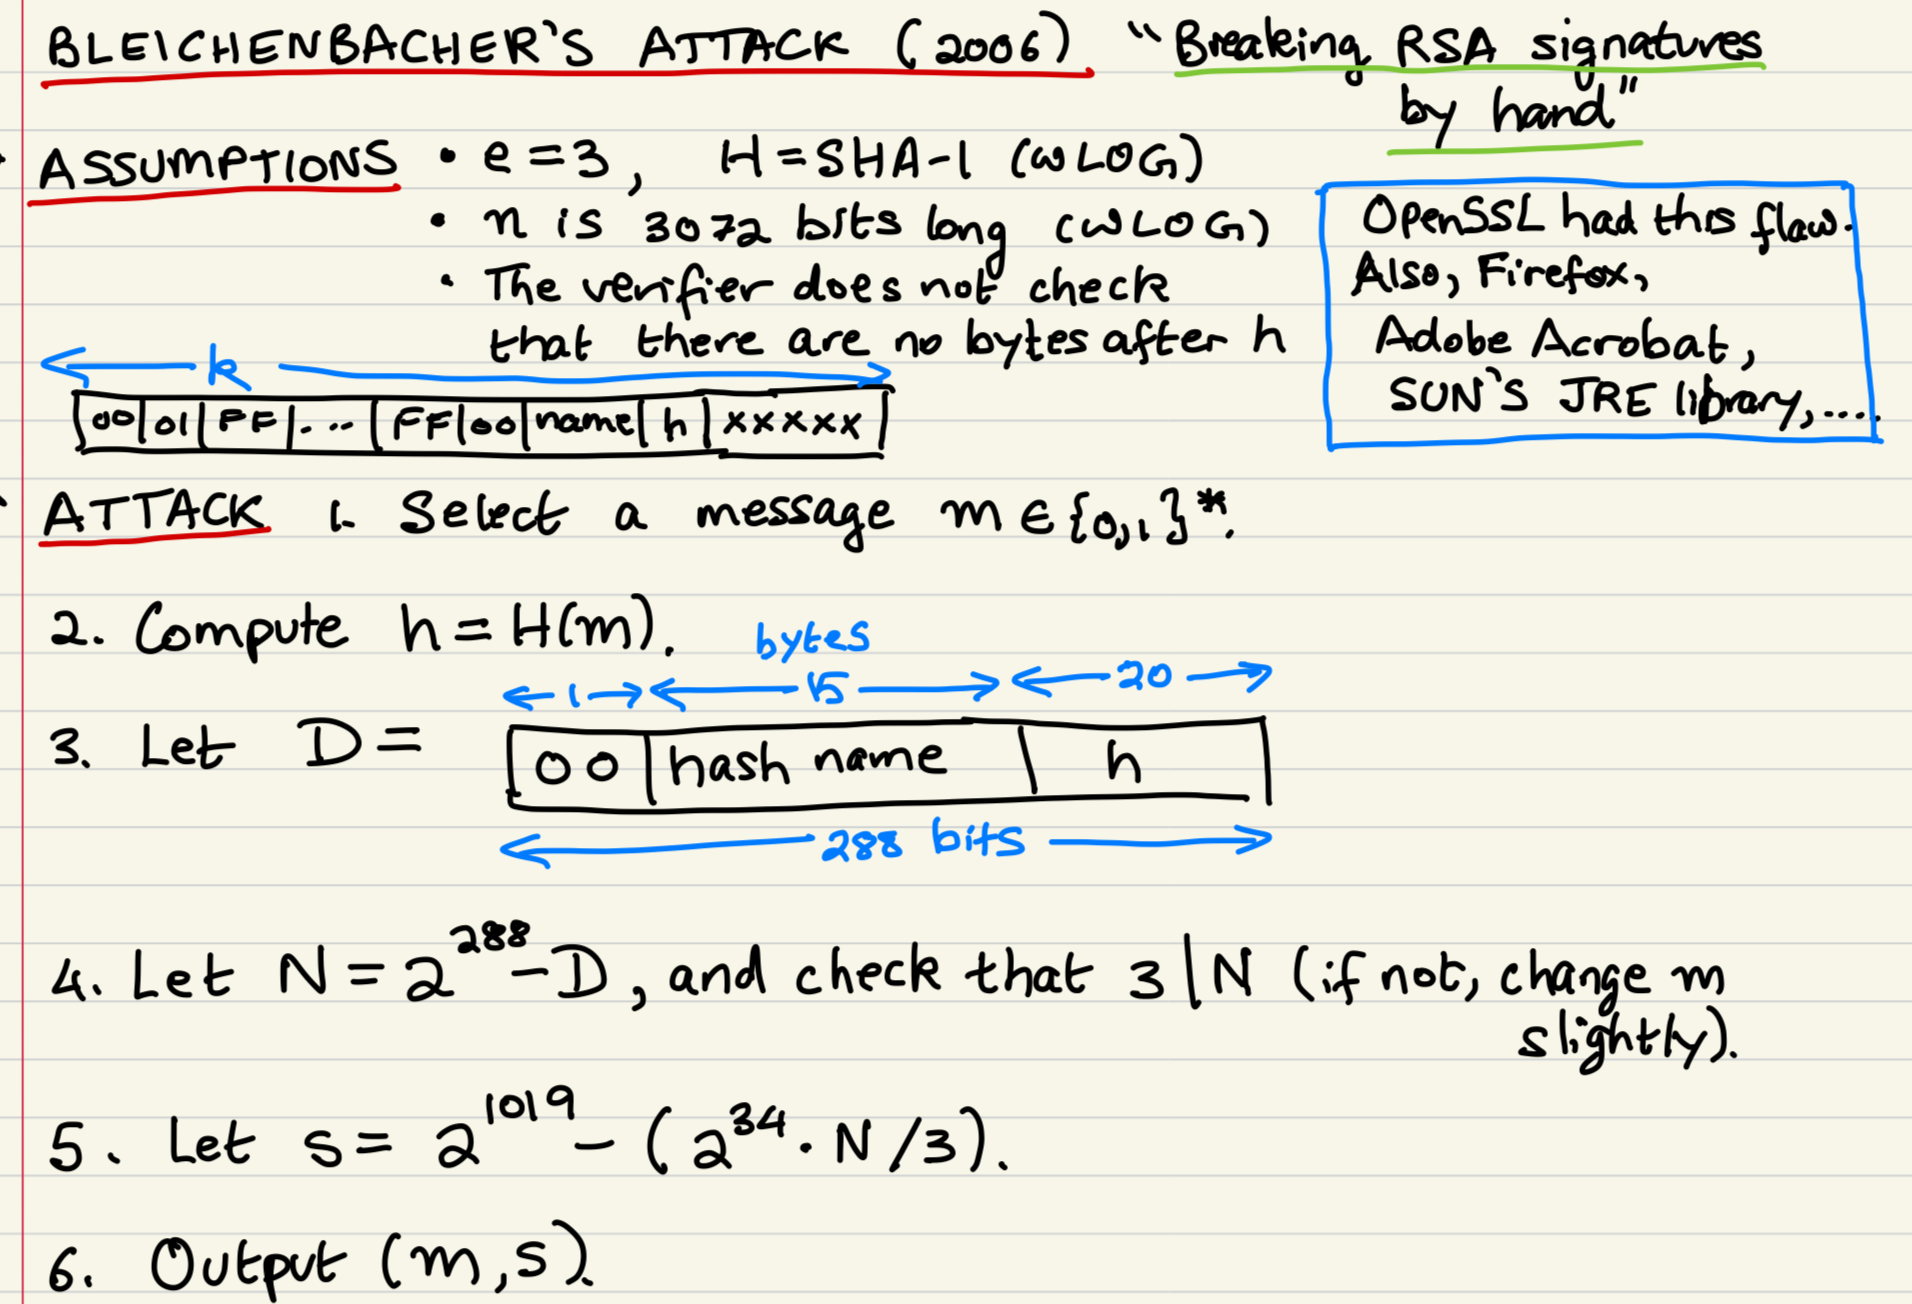 BLEICHENBACHER'S ATTACK (2006) "Breaking RSA signatures
by hand"
ASSUMPTIONS • e=3, H=SHA-1 (WLOG)
• n is 3072 bits long (WLOG)
• The verifier does not check
that there are no bytes after h
OpenSSL had this flaw.
Also, Firefox,
Adobe Acrobat,
SUN'S JRE library,....
k
00 01 FF ... FF 00 name h xxxxx
ATTACK 1. Select a message m∈{0,1}*.
2. Compute h=H(m).
bytes
1 15 20
3. Let D= 00 hash name h
288 bits
4. Let N=2^288-D, and check that 3|N (if not, change m
slightly).
5. Let s=2^1019-(2^34·N/3).
6. Output (m,s).